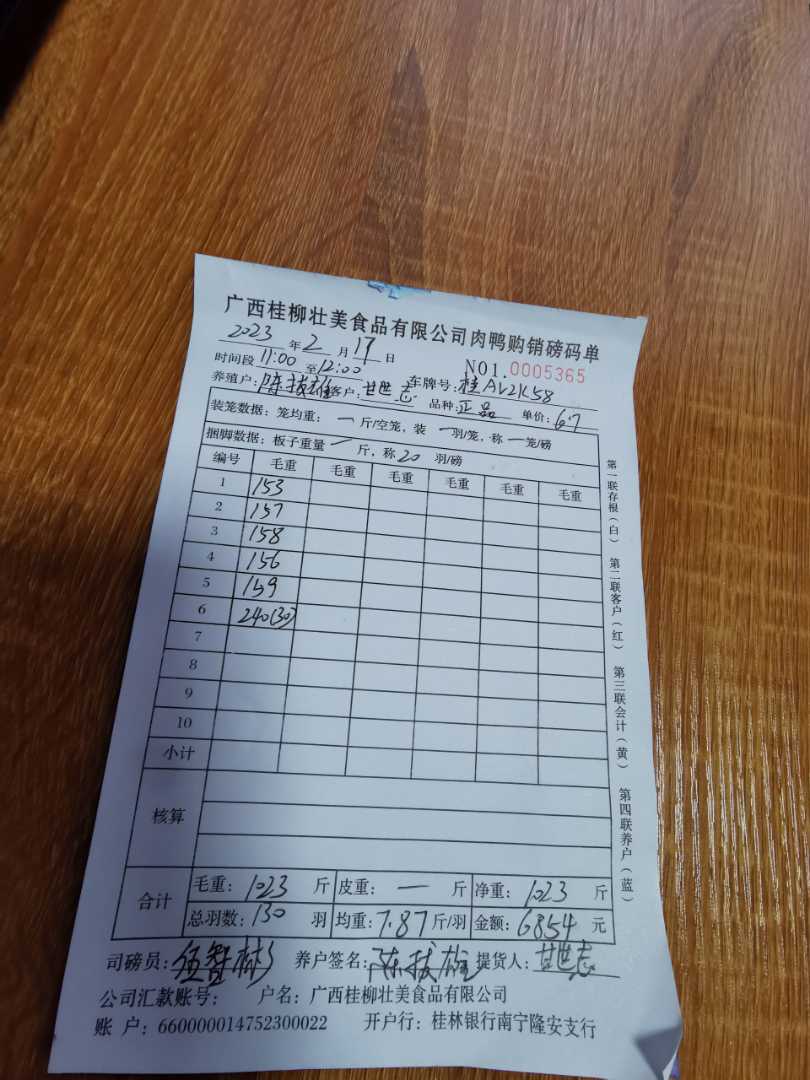 广西桂柳壮美食品有限公司肉鸭购销磅码单
2023 年 2 月 17 日 NO1.0005365
时间段 11:00 至 12:00 车牌号: 桂AV2K58
养殖户: 陈拔雄 客户: 甘世志 品种: 正品 单价: 6.7
装笼数据: 笼均重: 一 斤/空笼, 装 一 羽/笼, 称 一 笼/磅
捆脚数据: 板子重量 一 斤, 称 20 羽/磅
编号 毛重 毛重 毛重 毛重 毛重 毛重
1 153
2 157
3 158
4 156
5 159
6 240(30)
7
8
9
10
小计
核算
合计 毛重: 1023 斤 皮重: 一 斤 净重: 1023 斤
总羽数: 130 羽 均重: 7.87 斤/羽 金额: 6854 元
司磅员: 伍智彬 养户签名: 陈拔雄 提货人: 甘世志
公司汇款账号: 户名: 广西桂柳壮美食品有限公司
账 户: 660000014752300022 开户行: 桂林银行南宁隆安支行
第一联存根(白) 第二联客户(红) 第三联会计(黄) 第四联养户(蓝)